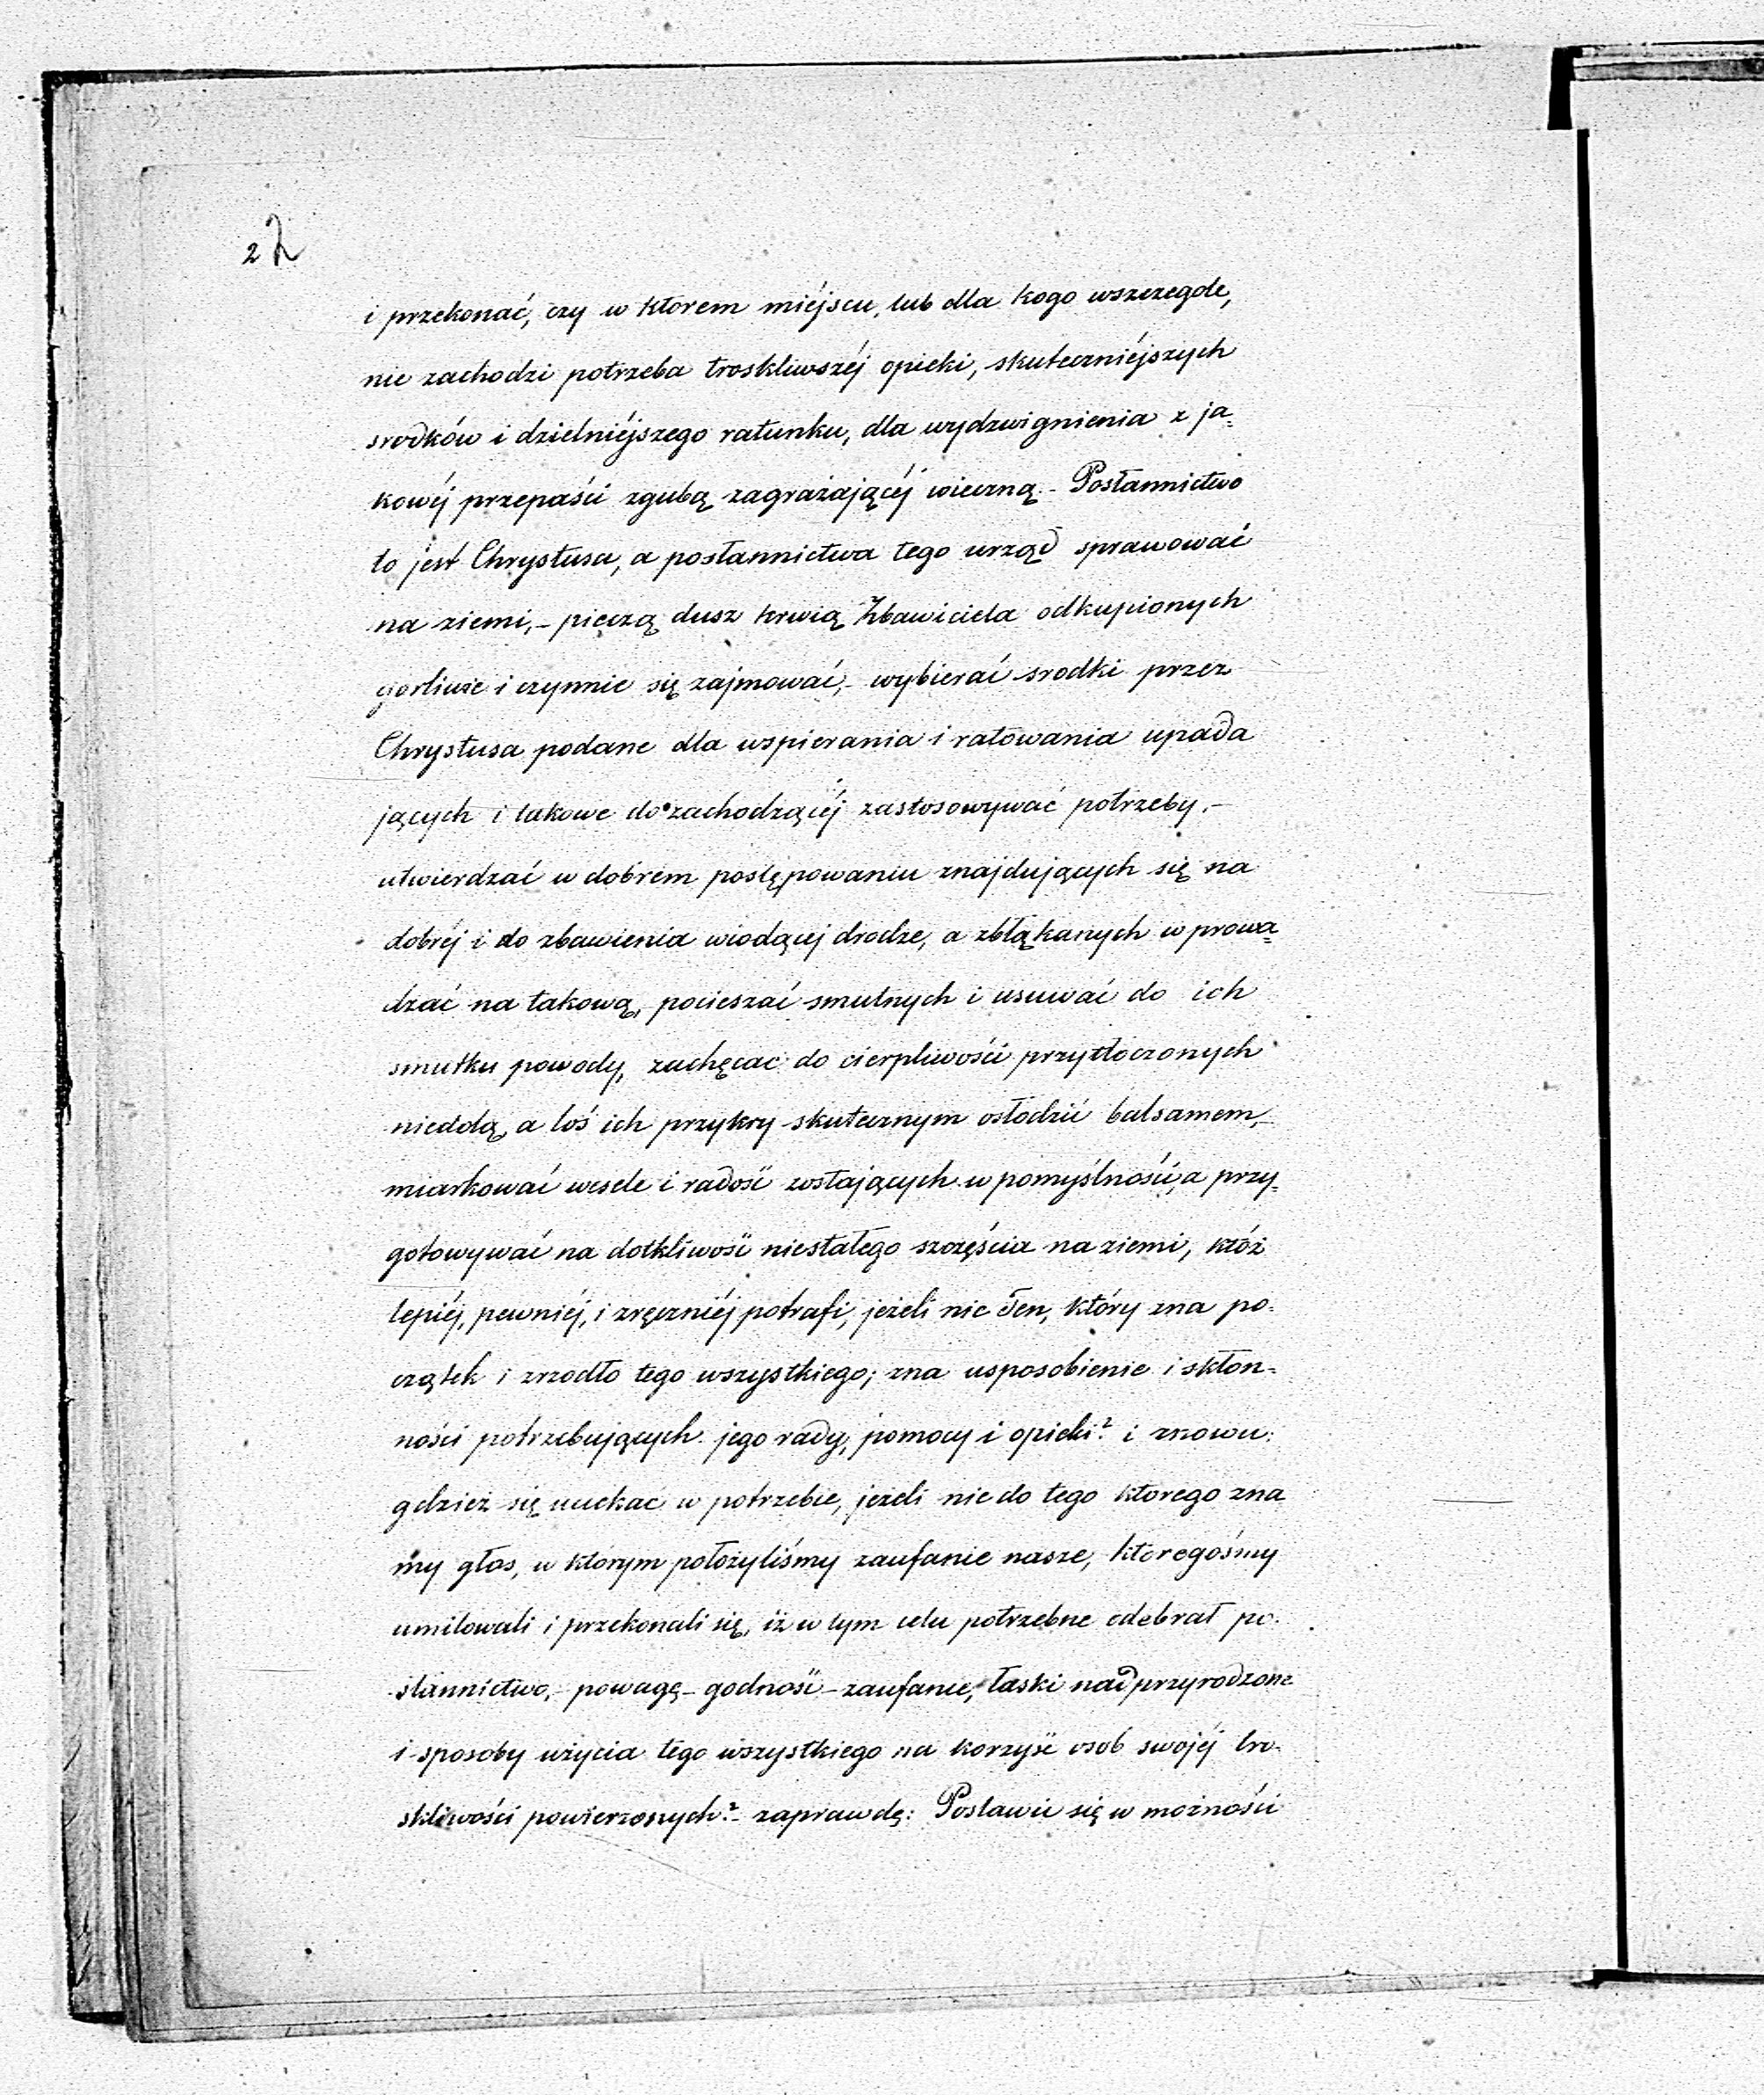 2 2
i przekonać, czy w ktorem miéjscu, lub dla kogo wszczegole,
nie zachodzi potrzeba troskliwszéj opieki, skuteczniéjszych
srodków i dzielniéjszego ratunku, dla wydzwignienia z ja=
kowéj przepaści zgubą zagrażającéj wieczną.- Posłannictwo
to jest Chrystusa, a posłannictwa tego urząd sprawować
na ziemi,- pieczą dusz krwią Zbawiciela odkupionych
gorliwie i czynnie się zajmować,- wybierać srodki przez
Chrystusa podane dla wspierania i ratowania upada
jących i takowe do zachodzącéj zastosowywać potrzeby.-
utwierdzać w dobrem postępowaniu znajdujących się na
dobréj i do zbawienia wiodącej drodze, a zbłąkanych w prowa=
dzać na takową, pocieszać smutnych i usuwać do ich
smutku powody, zachęcac do cierpliwości przytłoczonych
niedolą, a loś ich przykry skutecznym osłodzić balsamem,-
miarkować wesele i radość zostających w pomyślności, a przy=
gotowywać na dotkliwość niestałego szczęścia na ziemi, któż
lepiéj, pewniéj, i zręczniéj potrafi, jeżeli nie Ten, który zna po-
czątek i zrzodło tego wszystkiego; zna usposobienie i skłon=
ności potrzebujących jego rady, pomocy i opieki? i znowu:
gdzież się uciekać w potrzebie, jeżeli nie do tego ktorego zna
my głos, w ktorym położyliśmy zaufanie nasze, ktoregośmy
umilowali i przekonali się, iż w tym celu potrzebne odebrał po-
słannictwo,- powagę - godność - zaufanie, łaski nadprzyrodzone
i sposoby użycia tego wszystkiego na korzyść osob swojéj tro-
skliwości powierzonych?- zaprawdę: Postawić się w możności